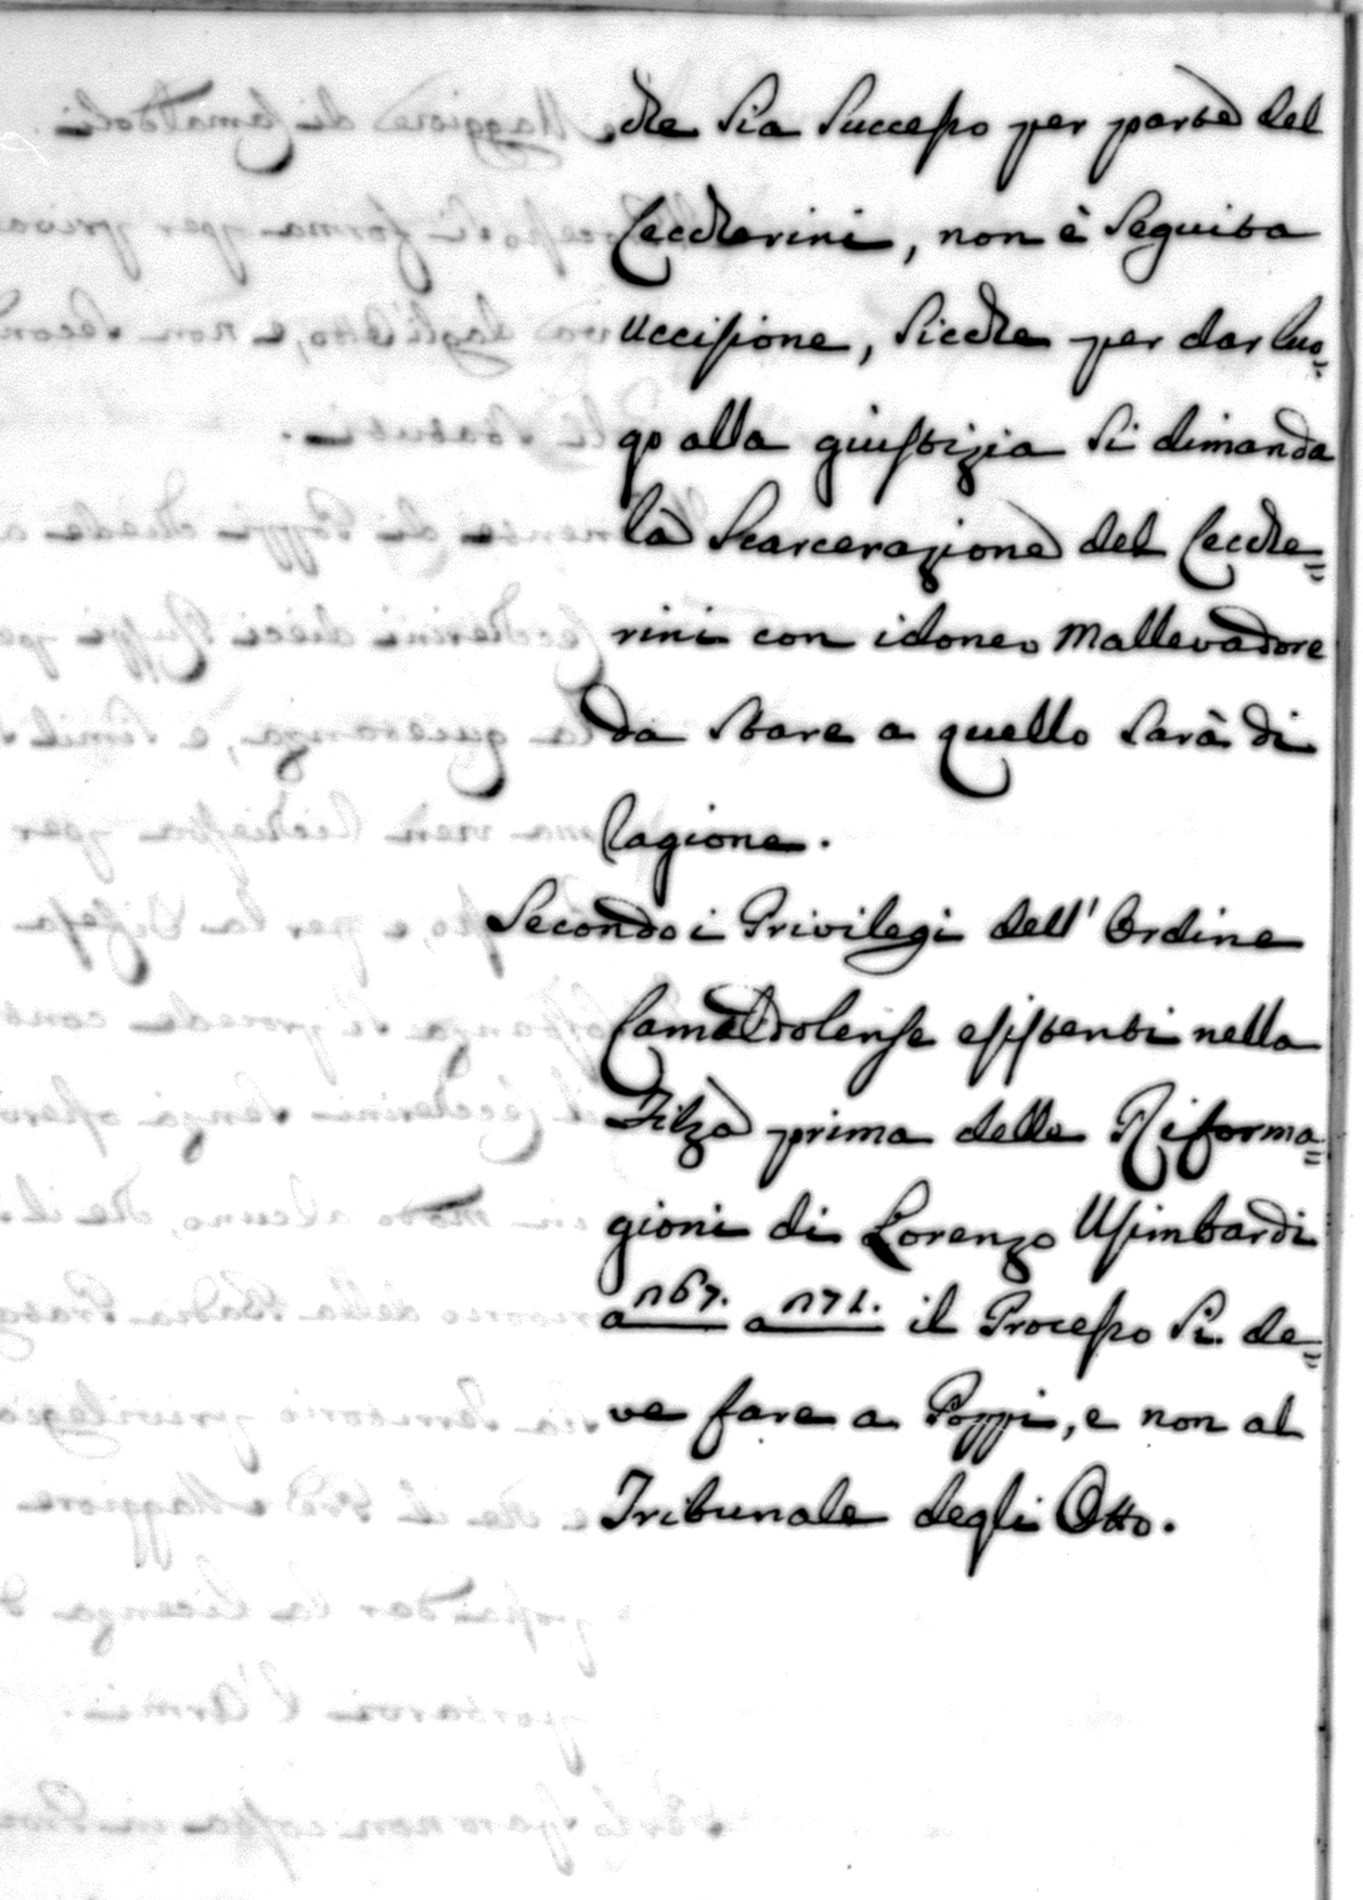 che sia successo per parte del
Ceccherini, non è seguita
uccisione, sicche per dar luo=
go alla giustizia si dimanda
la scarcerazione del Cecche=
rini con idoneo Mallevadore
da stare a quello sarà di
ragione.
Secondo i Privilegi dell' Ordine
Camaldolense esistenti nella
Filza prima delle Riforma=
gioni di Lorenzo Usimbardi
a 167. a 171. il Processo si de=
ve fare a Poppi, e non al
Tribunale degli Otto.